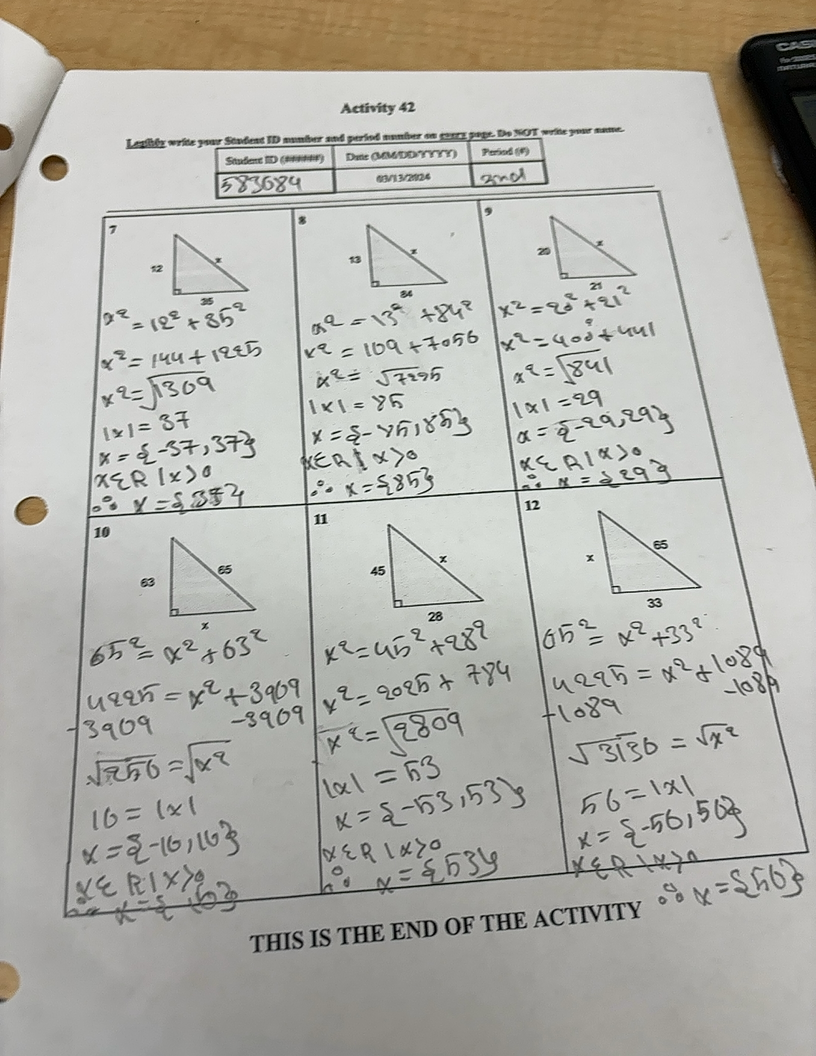 CASIO
Activity 42
Legibly write your Student ID number and period number on every page. Do NOT write your name.
Student ID (######) Date (MM/DD/YYYY) Period (#)
583684 03/13/2024 2nd
7
12
x
35
x² = 12² + 35²
x² = 144 + 1225
x² = √1369
|x| = 37
x = {-37, 37}
x ∈ R | x > 0
∴ x = {37}
8
13
x
84
x² = 13² + 84²
x² = 169 + 7056
x² = √7225
|x| = 85
x = {-85, 85}
x ∈ R | x > 0
∴ x = {85}
9
20
x
21
x² = 20² + 21²
x² = 400 + 441
x² = √841
|x| = 29
x = {-29, 29}
x ∈ R | x > 0
∴ x = {29}
10
63
65
x
65² = x² + 63²
4225 = x² + 3969
-3969 -3969
√256 = √x²
16 = |x|
x = {-16, 16}
x ∈ R | x > 0
∴ x = {16}
11
45
x
28
x² = 45² + 28²
x² = 2025 + 784
x² = √2809
|x| = 53
x = {-53, 53}
x ∈ R | x > 0
∴ x = {53}
12
x
65
33
65² = x² + 33²
4225 = x² + 1089
-1089 -1089
√3136 = √x²
56 = |x|
x = {-56, 56}
x ∈ R | x > 0
∴ x = {56}
THIS IS THE END OF THE ACTIVITY